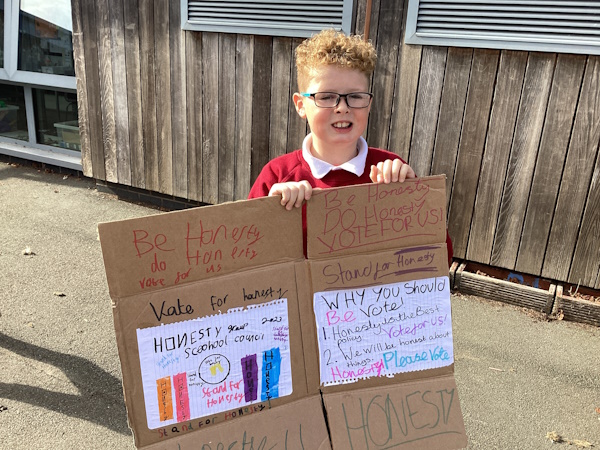 Be Honesty
do Honesty
vote for us
Vote for honesty
HONESTY group 2023
Scoohool council
Stand for
HONESTY
Stand for Honesty
Be Honesty
DO Honesty
VOTE FOR US!
Stand for Honesty
WHY You Should
Be Vote!
1. Honesty is the Best
policy. Vote for us!
2. We will be honest about
things.
Honesty! Please Vote
HONESTY